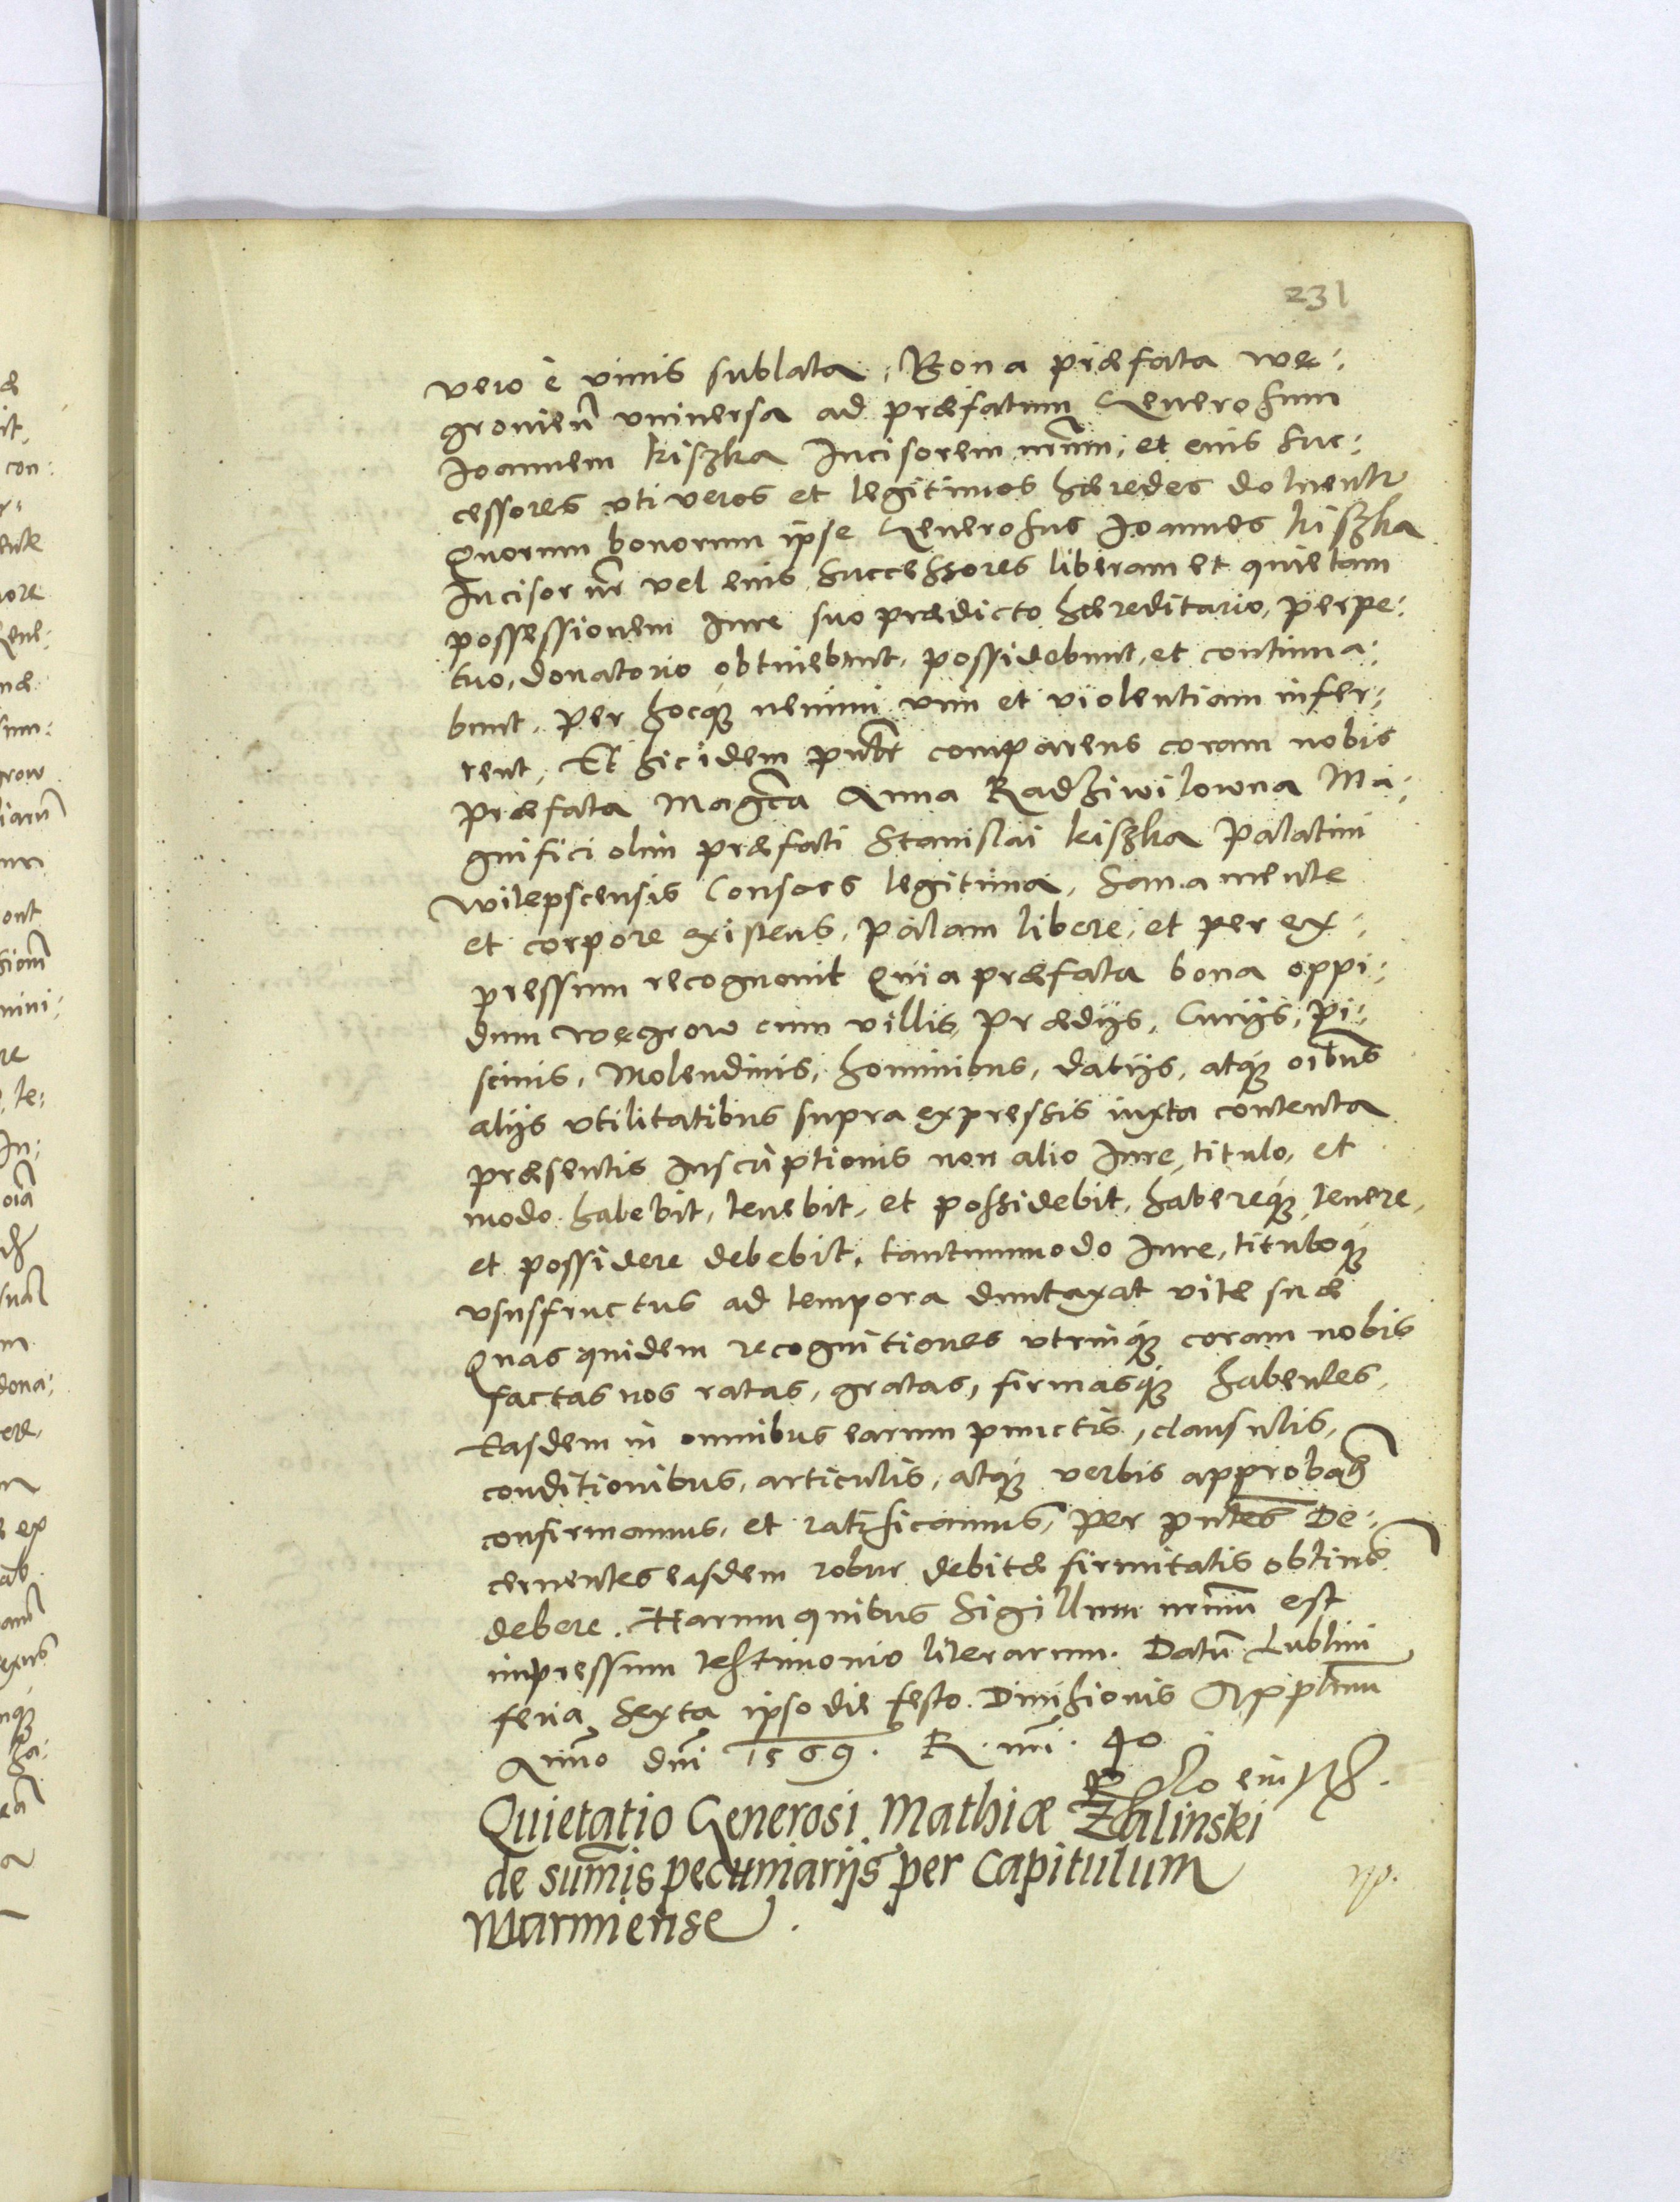 231
vero è viuis sublata, Bona præfata We:
grovien̄ vniuersa ad præfatum Generosum
Joannem Kiszka Incisorem nr̄um, et eius suc:
cessores vti veros et legitimos hæredes doluentr
Quorum bonorum ipse Generosus Joannes Kiszka
Incisor nr̄ vel eius successores liberam et quietam
possessionem Jure suo prædicto hæreditario, perpe:
tuo, donatorio obtinebunt, possidebunt, et continua:
bunt. Per hocq3 nemini vim et violentiam infer:
rent, Et hic idem pn̄br comparens coram nobis
Præfata Magc̄a Anna Radziwilowna Ma:
gnifici olim præfati Stanislai Kiszka Palatini
Witepscensis Consors legitima, sana mente
et corpore existens, palam libere, et per ex:
pressum recognouit Quia præfata bona oppi:
dum Wegrow cum villis, Prædijs, Curijs, Pi:
scinis, Molendinis, hominibus, datijs, atq3 oībus
alijs vtilitatibus supra expressis iuxta contenta
præsentis Inscriptionis non alio Jure, titulo, et
modo habebit, tenebit, et possidebit, habereq3, tenere,
et possidere debebit, tantummodo Jure, tituloq3
vsusfructus ad tempora duntaxat vitæ suæ
Quas quidem recognitiones vtrinq3 coram nobis
factas nos ratas, gratas, firmasq3 habentes,
Easdem in omnibus earum punctis, clausulis,
conditionibus, articulis, atq3 verbis approbam9
confirmamus, et ratificamus, per pn̄tes De:
cernentes easdem robur debitæ firmitatis obtine
debere. Harum quibus Sigillum nr̄um est
impressum testimonio literarum. Datū Lublini
feria Sexta ipso die festo Diuisionis App̄lorum
Anno dn̄i 1569. R. nr̄i. 40
R̄lo eius
Quietatio Generosi Mathiæ Zalinski
de sum̄is pecuniarijs per Capitulum
Warmiense.